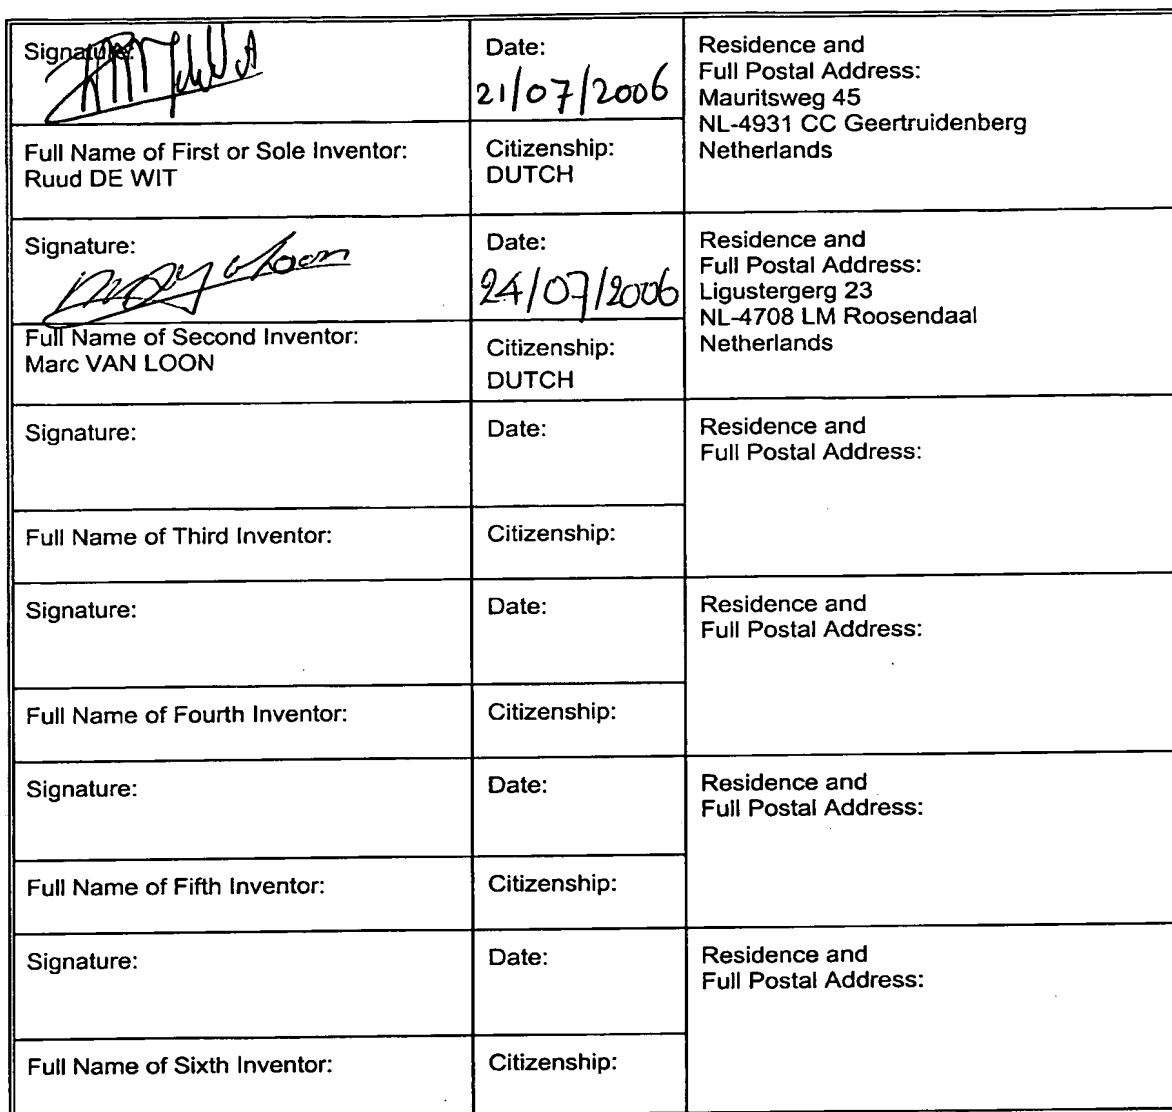 Signature:
Date:
21/07/2006
Residence and
Full Postal Address:
Mauritsweg 45
NL-4931 CC Geertruidenberg
Netherlands
Full Name of First or Sole Inventor:
Ruud DE WIT
Citizenship:
DUTCH
Signature:
Date:
24/07/2006
Residence and
Full Postal Address:
Ligustergerg 23
NL-4708 LM Roosendaal
Netherlands
Full Name of Second Inventor:
Marc VAN LOON
Citizenship:
DUTCH
Signature:
Date:
Residence and
Full Postal Address:
Full Name of Third Inventor:
Citizenship:
Signature:
Date:
Residence and
Full Postal Address:
Full Name of Fourth Inventor:
Citizenship:
Signature:
Date:
Residence and
Full Postal Address:
Full Name of Fifth Inventor:
Citizenship:
Signature:
Date:
Residence and
Full Postal Address:
Full Name of Sixth Inventor:
Citizenship: